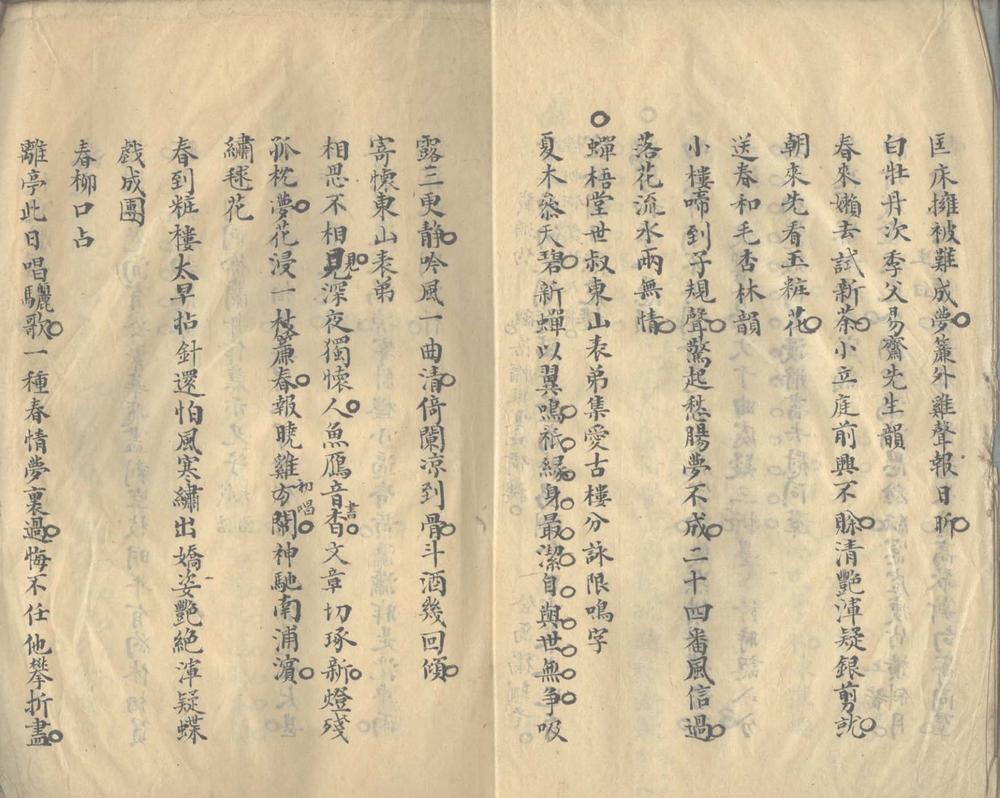 匡床擁被難成夢簾外雞聲報日昕
白牡丹次季父易齋先生韻
春來嬾去試新茶小立庭前興不賖清艷渾疑銀剪就
朝來先看玉粧花
送春和毛杏林韻
小樓啼到子規聲驚起愁腸夢不成二十四番風信過
落花流水兩無情
蟬梧堂世叔東山表弟集愛古樓分詠限鳴字
夏木叅天碧新蟬以翼鳴祇緣身最潔自與世無爭吸
露三更静吟風一曲清倚闌涼到骨斗酒幾回傾
寄懷東山表弟
相思不相見見深夜獨懷人魚鴈音書杳文章切琢新燈殘
孤枕夢花浸一簾春報曉雞初唱方開神馳南浦濵
繡毬花
春到粧樓太早拈針還怕風寒繡出嬌姿艷絶渾疑蝶
戯成團
春柳口占
離亭此日唱驪歌一種春情夢裏過悔不任他攀折盡